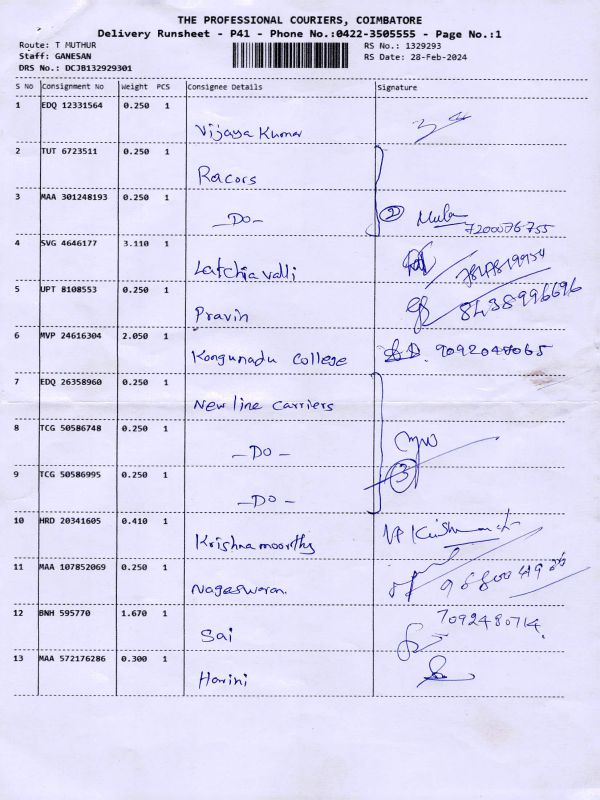 THE PROFESSIONAL COURIERS, COIMBATORE
Delivery Runsheet - P41 - Phone No.:0422-3505555 - Page No.:1
Route: T MUTHUR RS No.: 1329293
Staff: GANESAN RS Date: 28-Feb-2024
DRS No.: DCJB132929301
S No Consignment No Weight PCS Consignee Details Signature
1 EDQ 12331564 0.250 1
Vijaya Kumar
2 TUT 6723511 0.250 1
Racors
3 MAA 301248193 0.250 1
-Do- 2 Mula
7200076755
4 SVG 4646177 3.110 1
Latchiavalli
5 UPT 8108553 0.250 1
Pravin 8438996696
6 MVP 24616304 2.050 1
Kongunadu College 9092048065
7 EDQ 26358960 0.250 1
New line carriers
8 TCG 50586748 0.250 1
-Do-
9 TCG 50586995 0.250 1 3
-Do-
10 HRD 20341605 0.410 1
Krishnamoorthy
11 MAA 107852069 0.250 1
Nageswaran.
12 BNH 595770 1.670 1 7092480714.
Sai
13 MAA 572176286 0.300 1
Harini